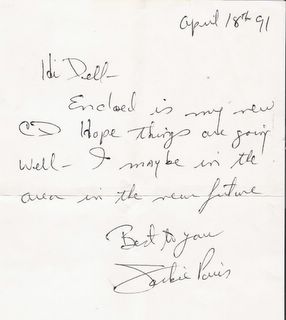 April 18th 91
Hi Dell-
Enclosed is my new
CD Hope things are going
Well- I maybe in the
area in the near future
Best to you
Jackie Paris